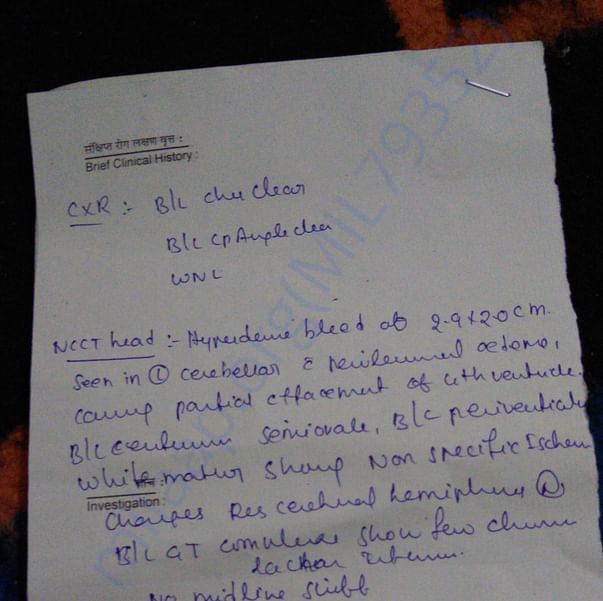 संक्षिप्त रोग लक्षण वृत्त :
Brief Clinical History :
CXR :- B/L chest clear
B/L CP Angle clear
WNL
NCCT head :- Hyperdense bleed of 2.9 x 2.0 cm.
seen in (L) cerebellar c perilesional oedema,
causing partial effacement of 4th ventricle.
B/L centrum semiovale, B/L periventricular
white matter showing Non specific Ischem
जाँच :
Investigation :
changes Res cerebral hemisphere (N)
B/L GT complexes show few chronic
lacunar
No midline shift